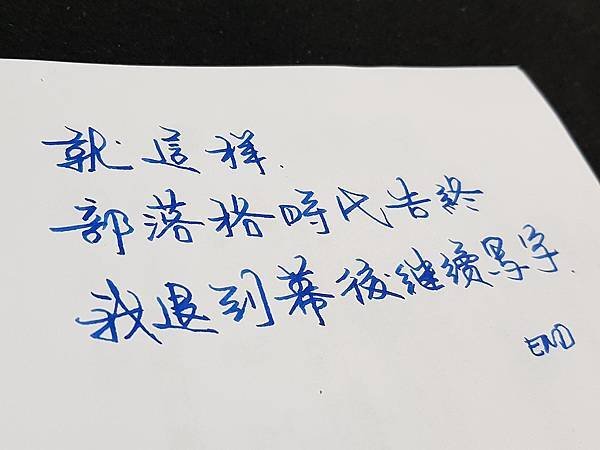 就這样.
部落格時代告終
我退到幕後继續写字.
END